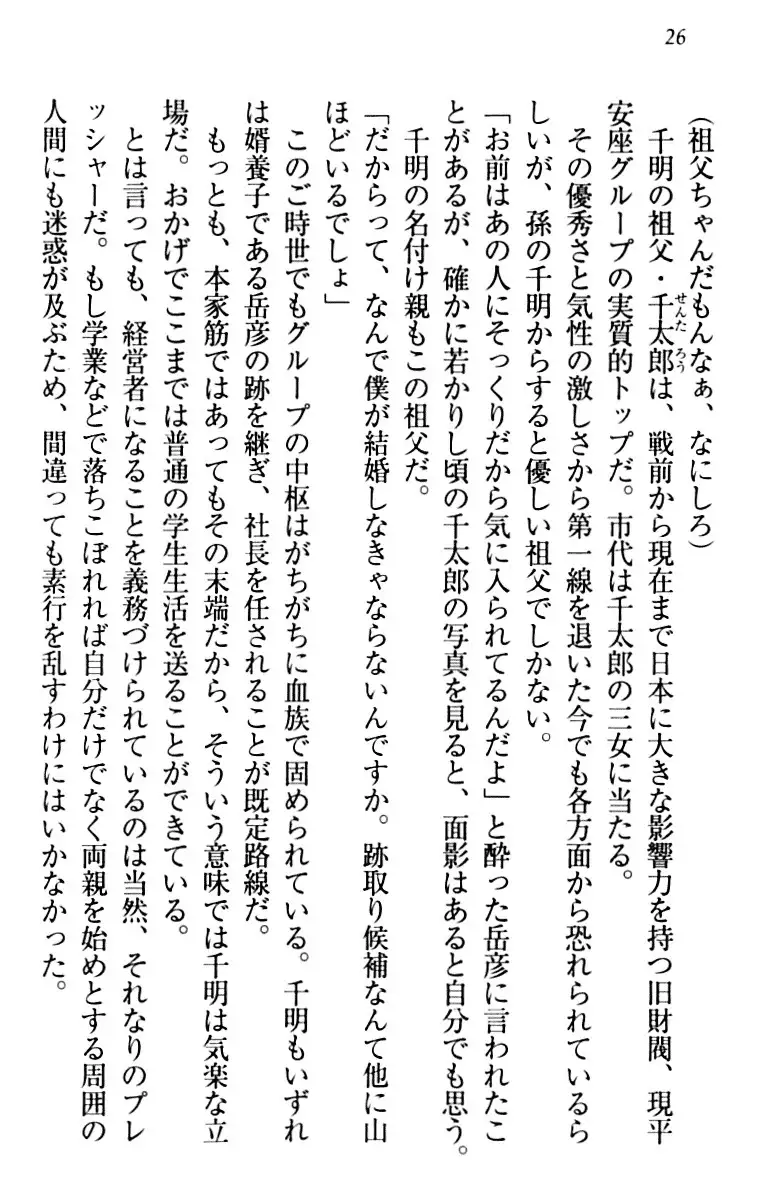 26
(祖父ちゃんだもんなぁ、なにしろ)
千明の祖父・千太郎は、戦前から現在まで日本に大きな影響力を持つ旧財閥、現平
せんた ろう
安座グループの実質的トップだ。市代は千太郎の三女に当たる。
その優秀さと気性の激しさから第一線を退いた今でも各方面から恐れられているら
しいが、孫の千明からすると優しい祖父でしかない。
「お前はあの人にそっくりだから気に入られてるんだよ」と酔った岳彦に言われたこ
とがあるが、確かに若かりし頃の千太郎の写真を見ると、面影はあると自分でも思う。
千明の名付け親もこの祖父だ。
「だからって、なんで僕が結婚しなきゃならないんですか。跡取り候補なんて他に山
ほどいるでしょ」
このご時世でもグループの中枢はがちがちに血族で固められている。千明もいずれ
は婿養子である岳彦の跡を継ぎ、社長を任されることが既定路線だ。
もっとも、本家筋ではあってもその末端だから、そういう意味では千明は気楽な立
場だ。おかげでここまでは普通の学生生活を送ることができている。
とは言っても、経営者になることを義務づけられているのは当然、それなりのプレ
ッシャーだ。もし学業などで落ちこぼれれば自分だけでなく両親を始めとする周囲の
人間にも迷惑が及ぶため、間違っても素行を乱すわけにはいかなかった。